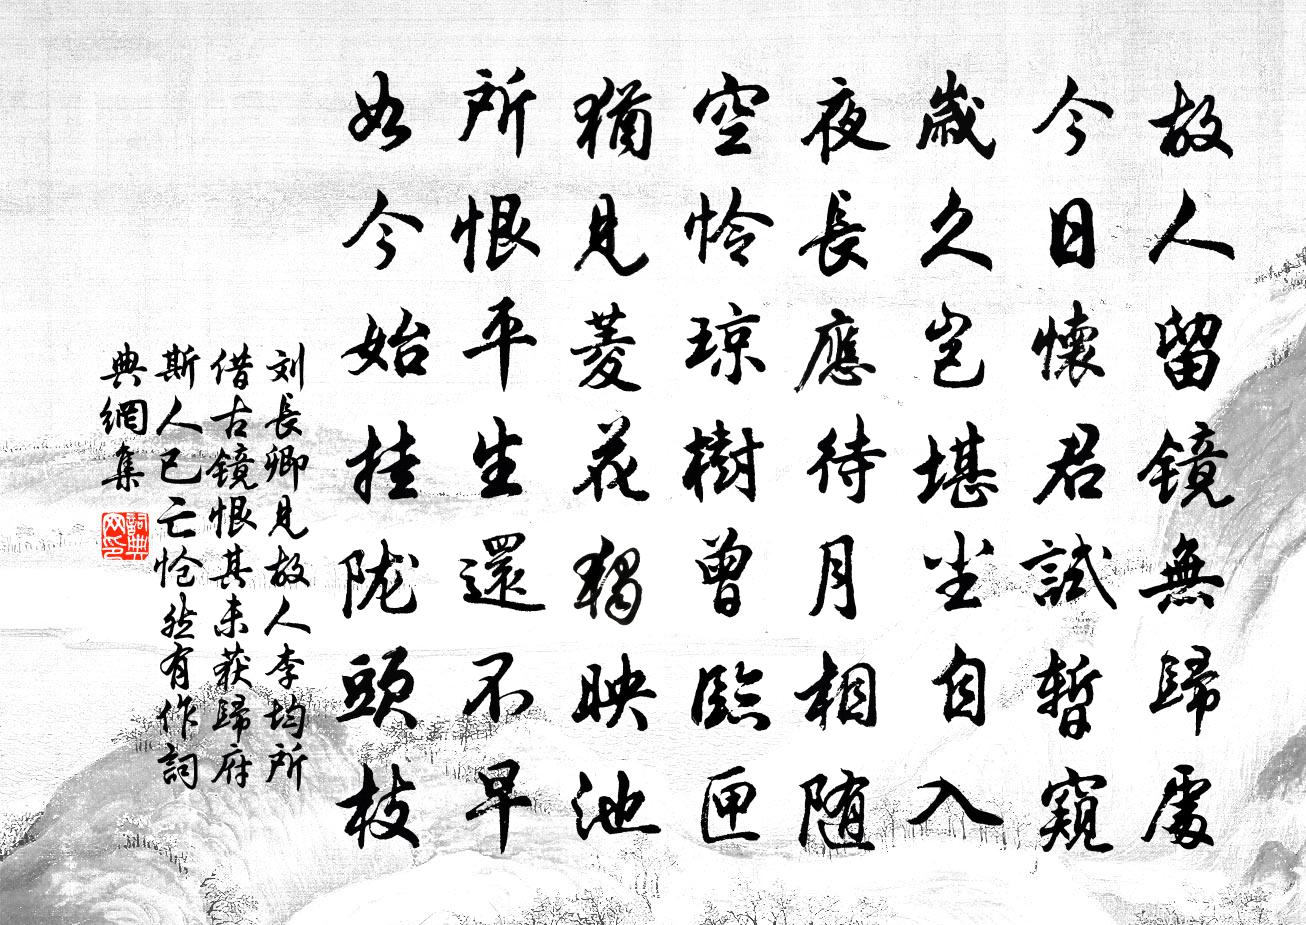 故人留镜無歸處
今日懷君試暫窺
歲久岂堪尘自入
夜長應待月相随
空怜琼樹曾臨匣
猶見菱花独映池
所恨平生還不早
如今始挂陇頭枝
刘長卿見故人李均所
借古镜恨其未获歸府
斯人已亡怆然有作詞
典網集
詞典网印